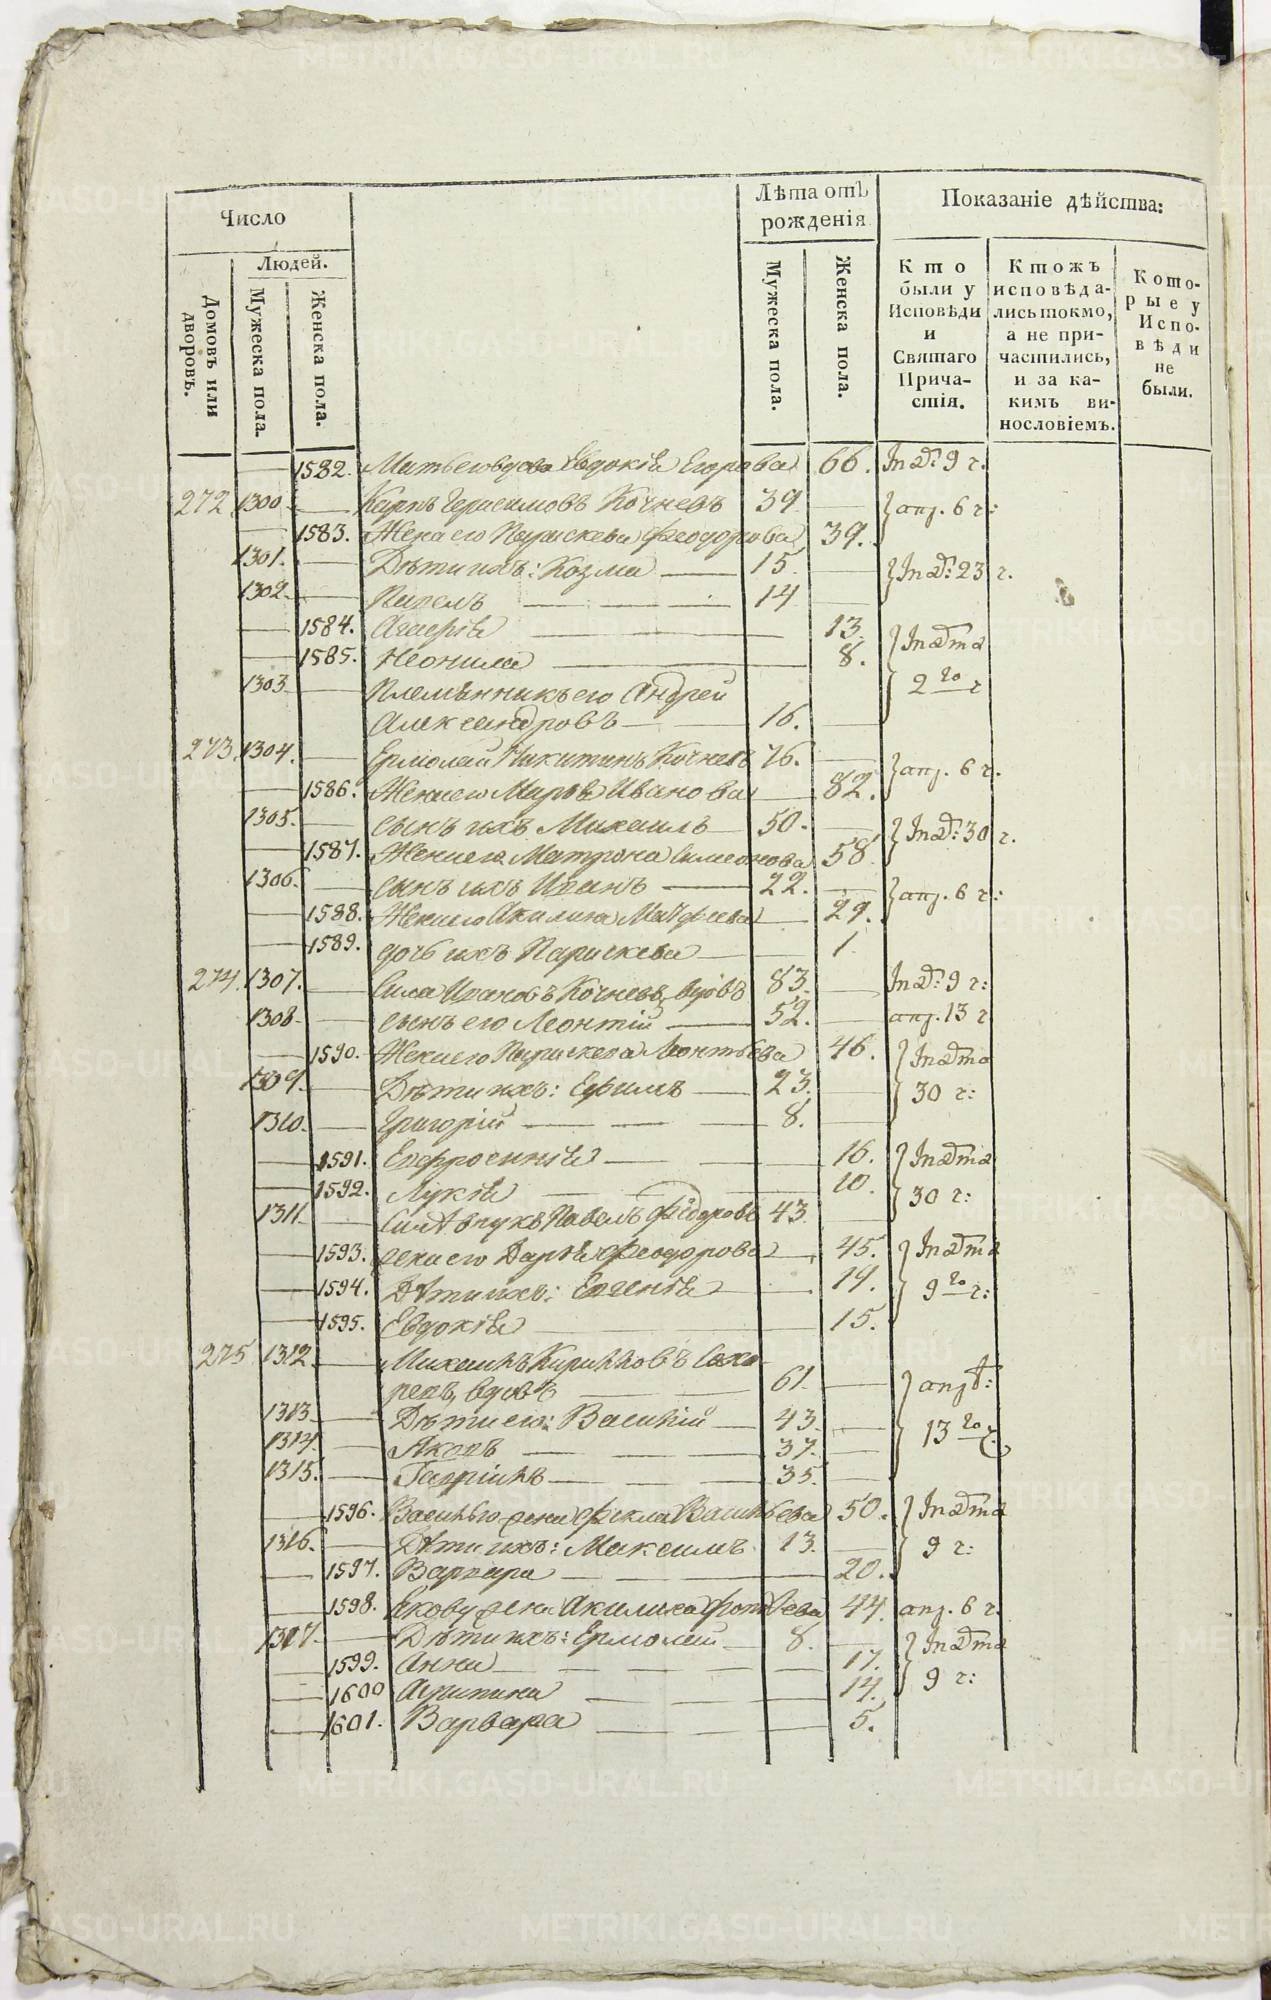 Число
Людей.
Домовъ или дворовъ.
Мужеска пола.
Женска пола.
Лѣта отъ рожденія
Мужеска пола.
Женска пола.
Показаніе дѣйства:
Кто были у Исповѣди и Святаго Причастія.
Ктожъ исповѣдались токмо, а не причастились, и за какимъ винословіемъ.
Которые у Исповѣди не были.
1582. вдова Евдокія Егорова 66. 9 г.
272 1300 Карпъ Герасимовъ Кочневъ 39 апр. 6 г:
1583. Жена его Параскева Феодорова 39.
1301. Дѣти ихъ: Козма 15. 23 г.
1302. Павелъ 14
1584. Агафія 13.
1585. Неонила 8. 2 го г
1303. Племянникъ его Андрей
Александровъ 16.
273. 1304. Ермолай Никитинъ Кочневъ 76. апр. 6 г.
1586. Жена его Марѳа Иванова 82.
1305. сынъ ихъ Михаилъ 50. 30 г.
1587. Жена его Матрона Симеонова 58.
1306. сынъ ихъ Иванъ 22. апр. 6 г:
1588. Жена его Акилина 29.
1589. дочь ихъ Параскева 1.
274. 1307. Сила Ивановъ Кочневъ, вдовъ 83. 9 г:
1308. сынъ его Леонтій 52. апр. 13 г
1590. Жена его Параскева Леонтьева 46.
1309. Дѣти ихъ: Ефимъ 23. 30 г:
1310. Григорій 8.
1591. Евфросинія 16.
1592. Лукія 10. 30 г:
1311. внукъ Павелъ Федоровъ 43
1593. жена его Дарія Феодорова 45.
1594. Дѣти ихъ: Евгенія 19. 9 го г:
1595. Евдокія 15.
275 1312. Михаилъ Кирилловъ
вдовъ 61.
1313. Дѣти его: Василій 43. 13 го г.
1314. Яковъ 37.
1315. Гавріилъ 35.
1596. Василья жена Фекла Васильева 50.
1316. Дѣти ихъ: Максимъ 13. 9 г:
1597. Варвара 20.
1598. жена Акилина 44. апр. 6 г.
1317. Дѣти ихъ: Ермолай 8.
1599. Анна 17.
1600 Агрипина 14. 9 г:
1601. Варвара 5.
METRIKI.GASO-URAL.RU